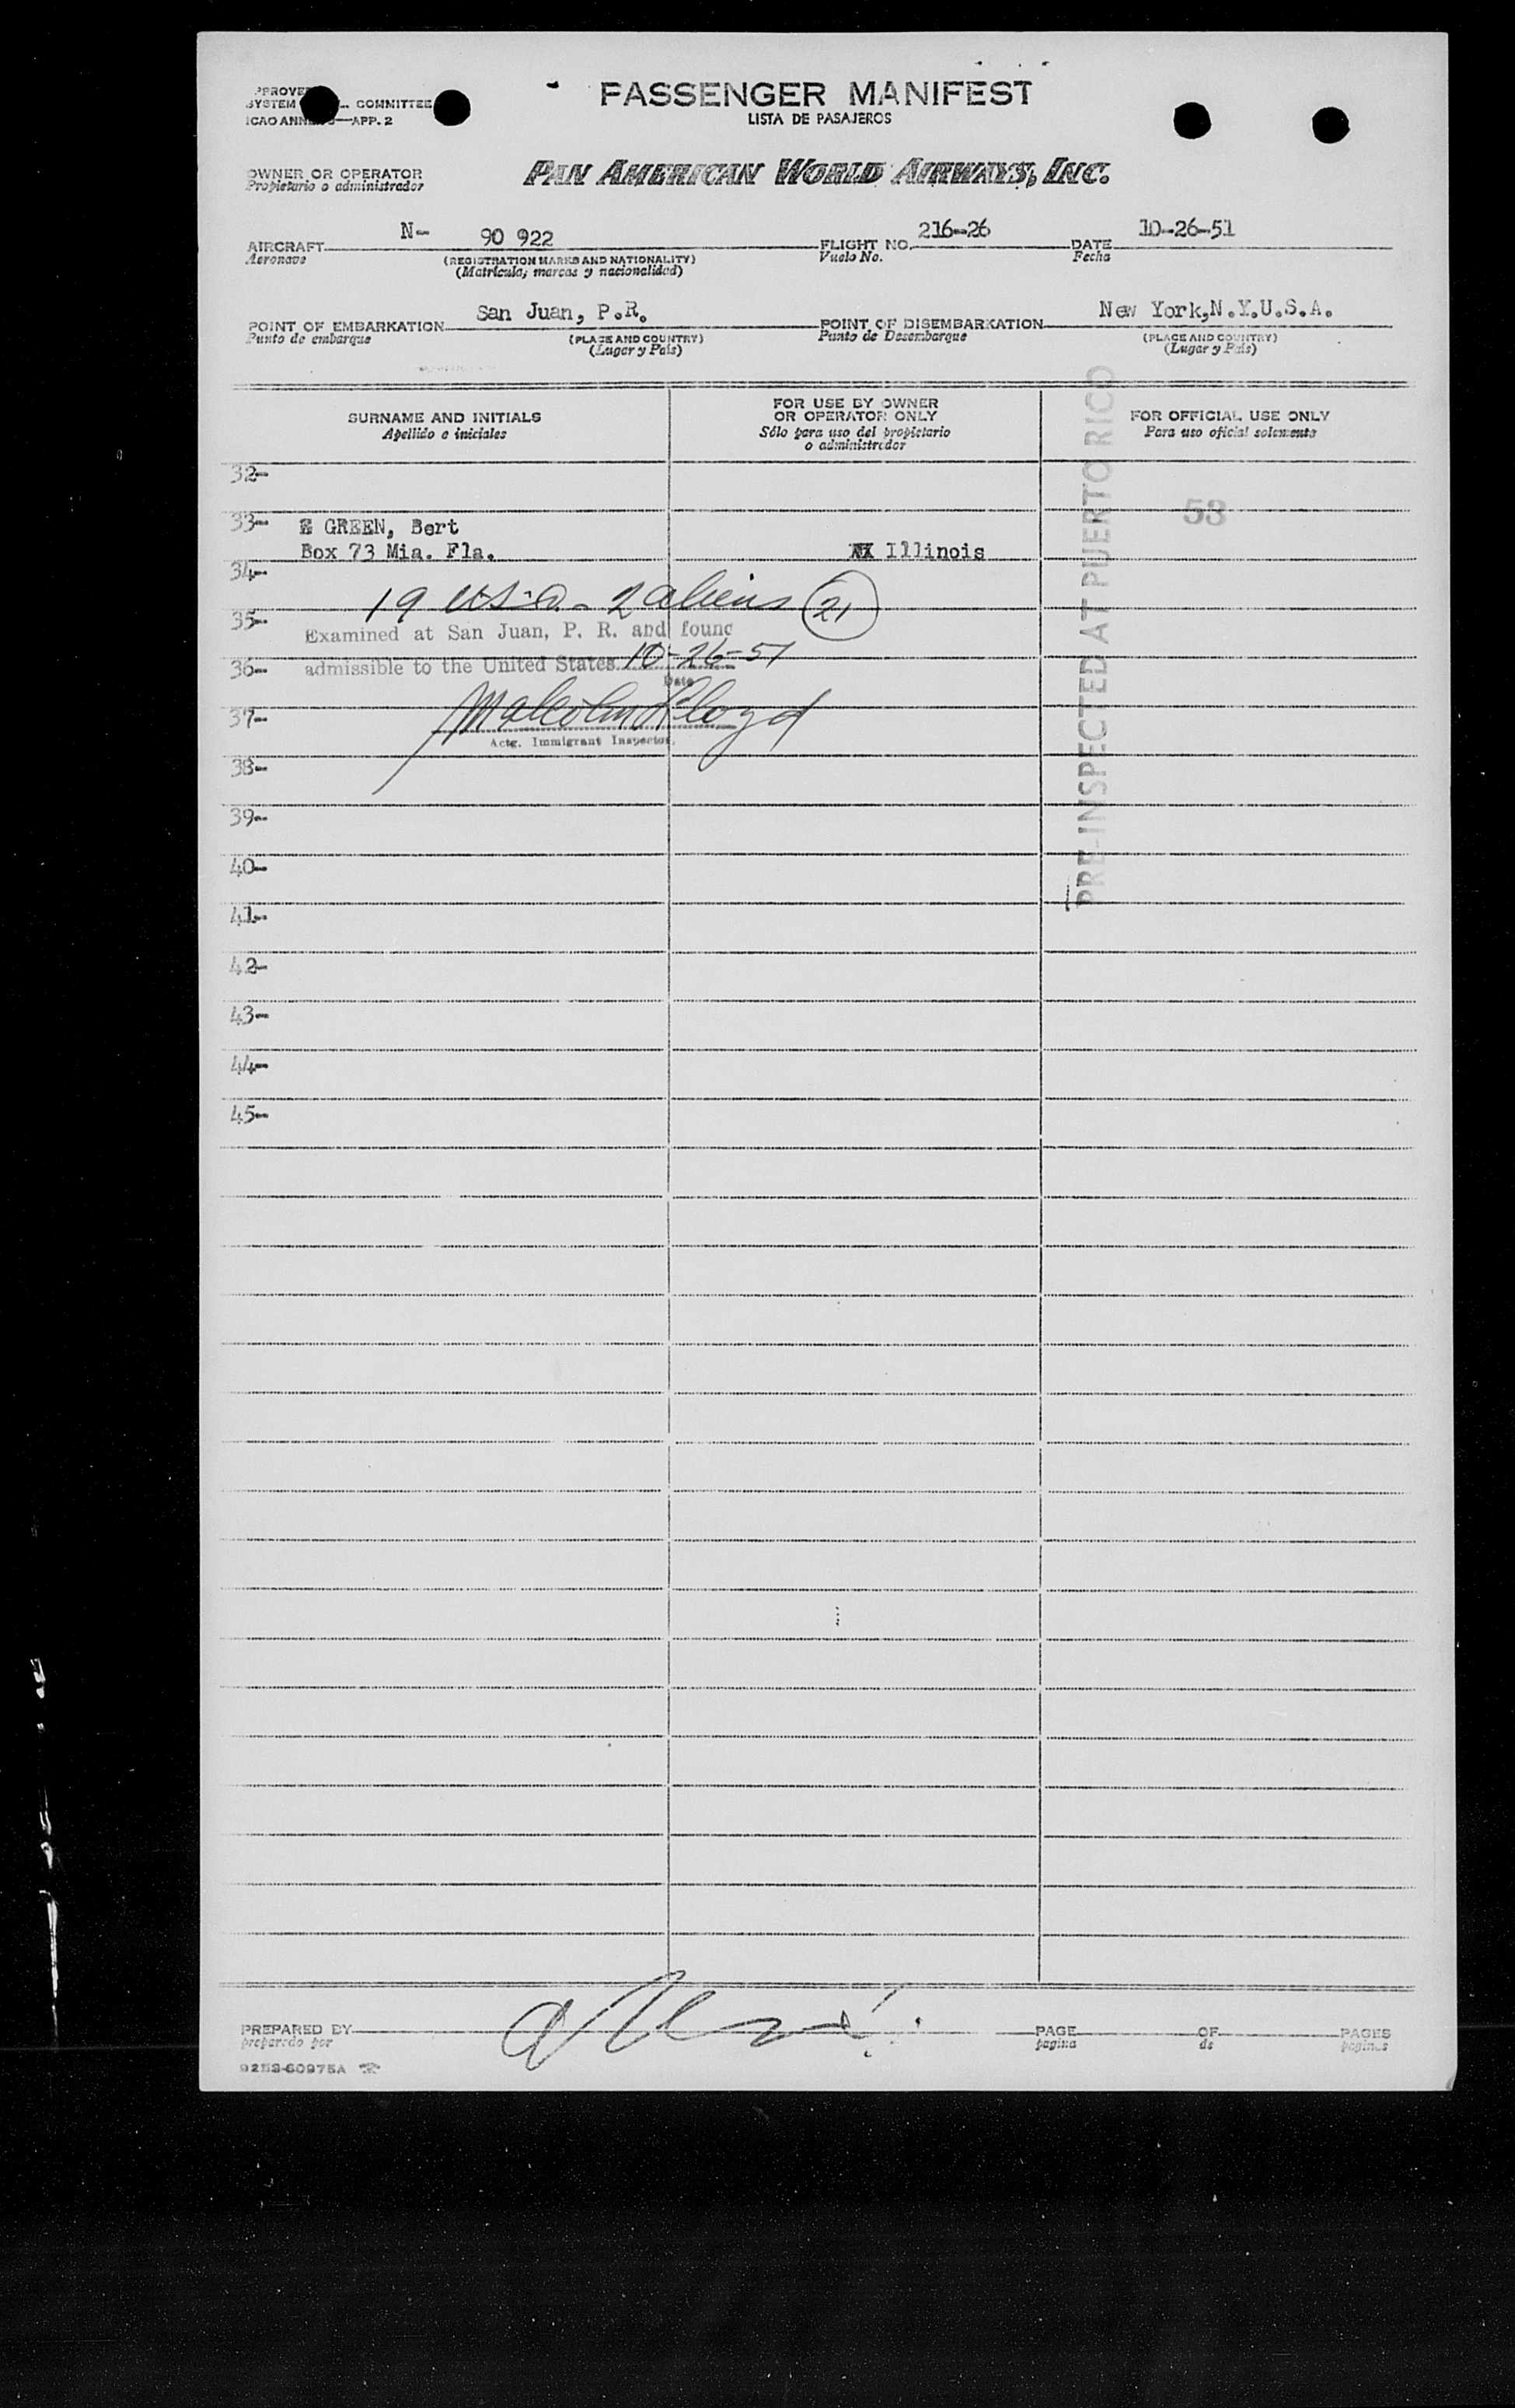 PASSENGER MANIFEST
LISTA DE PASAJEROS
COMMITTEE
SYSTEM
ICAO ANN APP. 2
OWNER OR OPERATOR
Propietario o administrador
PAN AMERICAN WORLD AIRWAYS, INC.
AIRCRAFT N- 90 922 FLIGHT NO. 216-26 DATE 10-26-51
Aeronave (REGISTRATION MARKS AND NATIONALITY) Vuelo No. Fecha
(Matrícula, marcas y nacionalidad)
POINT OF EMBARKATION San Juan, P.R. POINT OF DISEMBARKATION New York,N.Y.U.S.A.
Punto de embarque (PLACE AND COUNTRY) Punto de Desembarque (PLACE AND COUNTRY)
(Lugar y País) (Lugar y País)
SURNAME AND INITIALS FOR USE BY OWNER OR OPERATOR ONLY FOR OFFICIAL USE ONLY
Apellido e iniciales Sólo para uso del propietario o administrador Para uso oficial solamente
32-
33- GREEN, Bert 53
Box 73 Mia. Fla. Illinois
34-
19 USC - 2 aliens 21
35-
Examined at San Juan, P. R. and found
36- admissible to the United States 10-26-51
Date
37- Malcolm Lloyd
Actg. Immigrant Inspector.
38-
39-
40-
41-
42-
43-
44-
45-
PRE-INSPECTED AT PUERTO RICO
PREPARED BY PAGE OF PAGES
preparado por pagina de paginas
9253-60975A